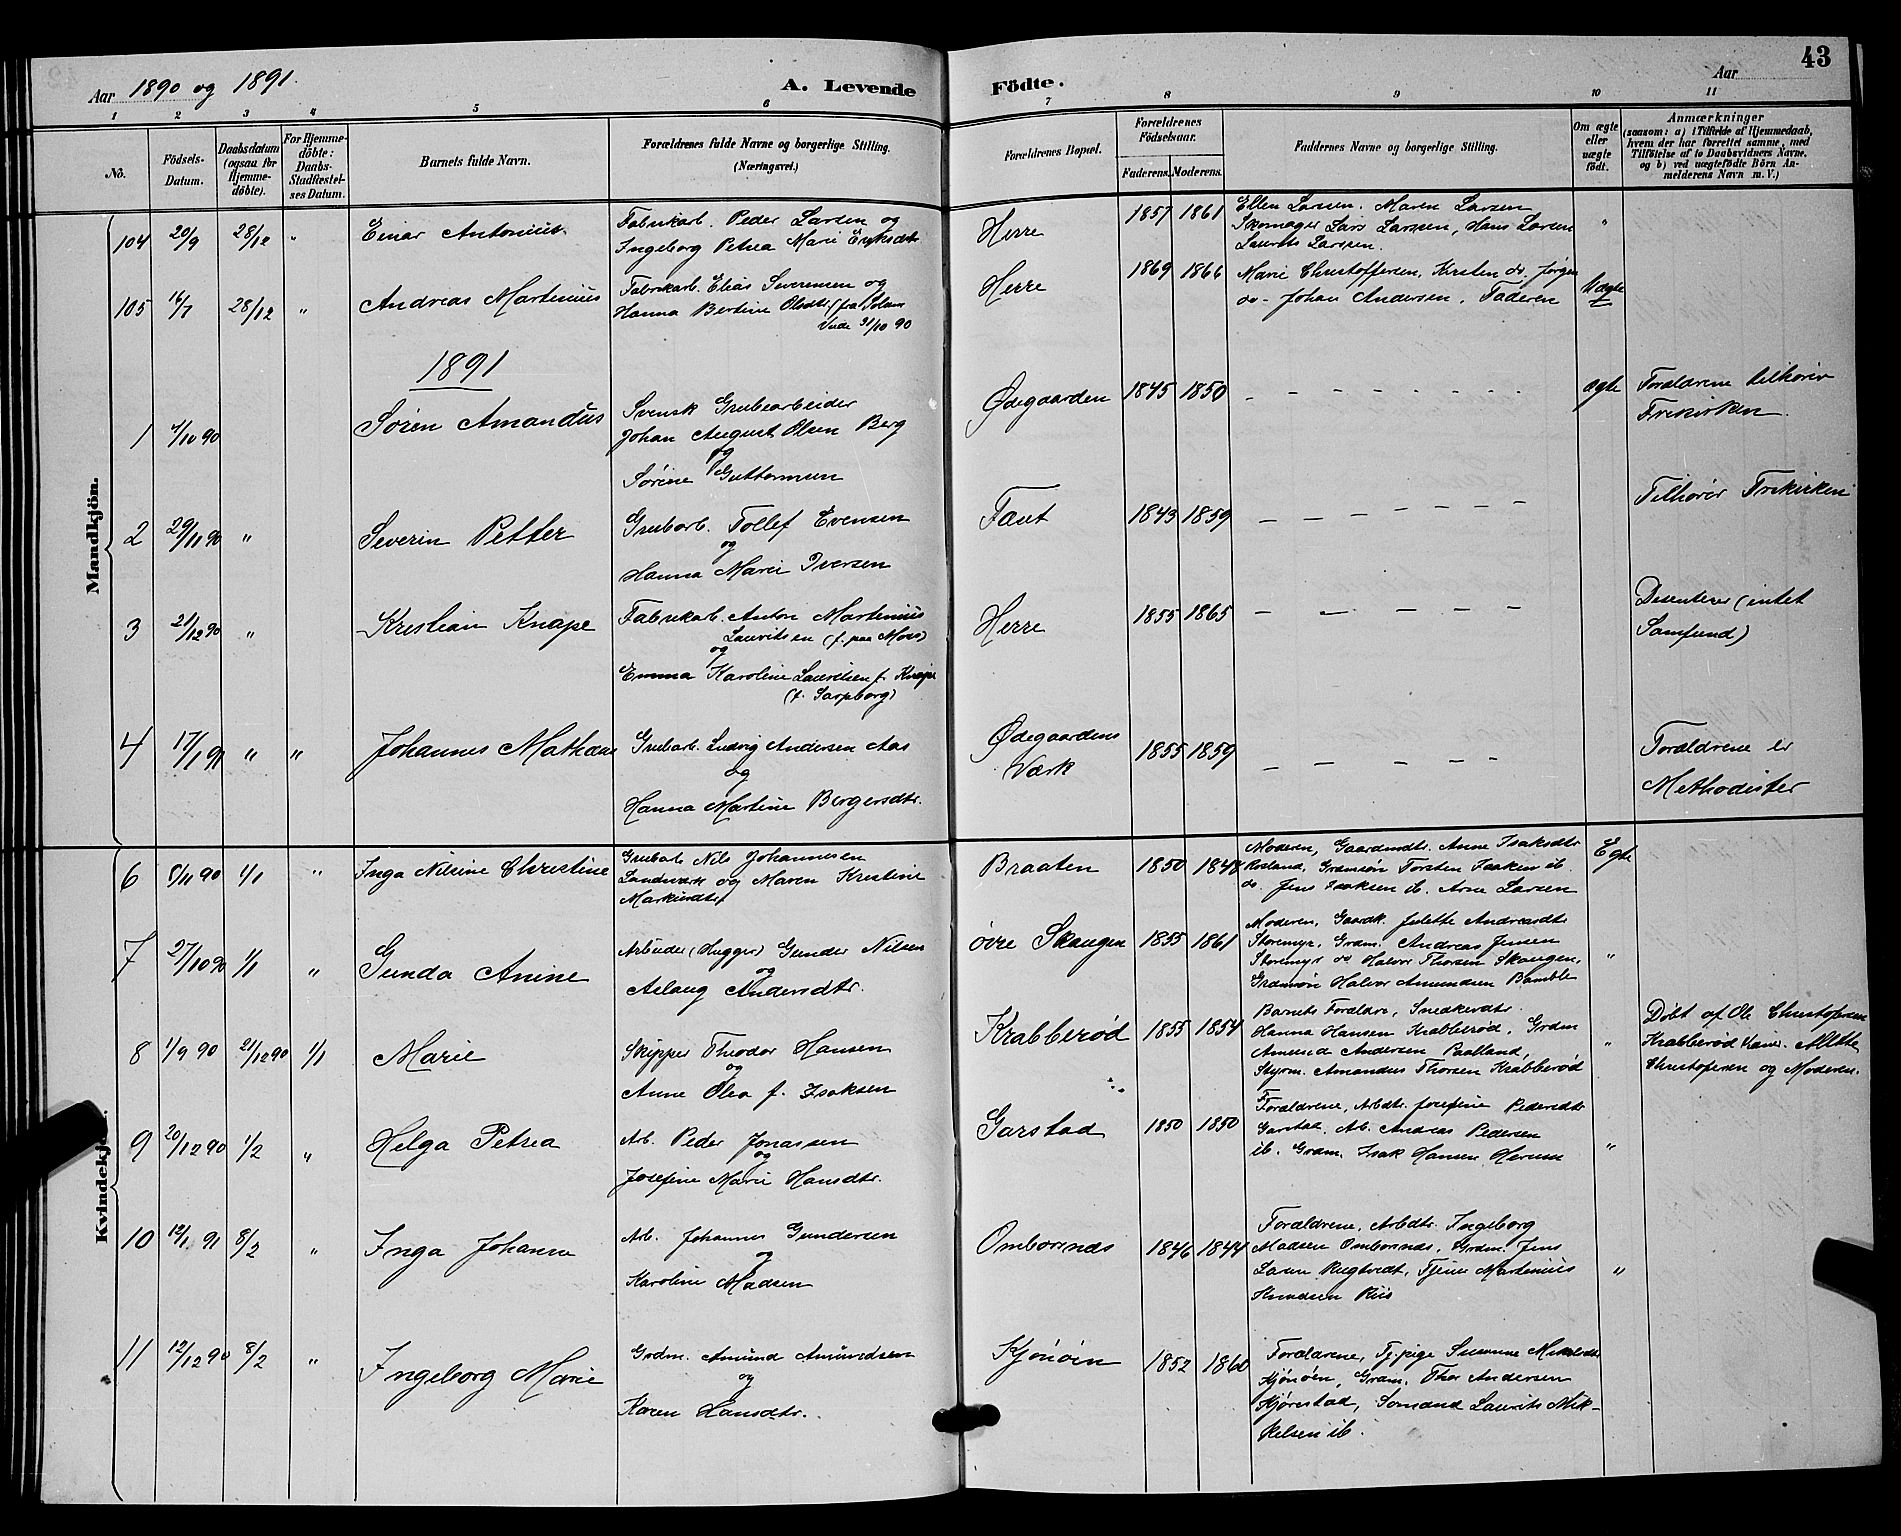 43
Aar 1890 og 1891.
A. Levende
Födte.
Aar
1 2 3 4 5 6
7 8 9 10 11
No.
Födsels-
Datum.
Daabsdatum
(ogsaa for
Hjemme-
döbte).
For Hjemme-
döbte:
Daabs-
Stadfæstel-
ses Datum.
Barnets fulde Navn.
Forældrenes fulde Navne og borgerlige Stilling.
(Næringsvei.)
Forældrenes Bopæl.
Forældrenes
Födselsaar.
Faderens. Moderens.
Faddernes Navne og borgerlige Stilling.
Om ægte
eller
uægte
födt.
Anmærkninger
(saasom: a) i Tilfælde af Hjemmedaab,
hvem der har forrettet samme, med
Tilföielse af to Daabsvidners Navne,
og b) ved uægtefödte Börn An-
melderens Navn m. V.)
Mandkjön.
104 20/9 28/12 " Einar Antonius
Fabrikarb. Peder Larsen og
Ingeborg Petrea Marie Eriksdtr
Herre 1857 1861
Ellen Larsen. Maren Larsen
Skomager Lars Larssen, Hans Larsen
Laurits Larssen.
"
105 16/7 28/12 " Andreas Martinius
Fabrikarb. Elias Severinsen og
Hanna Bertine Olsdtr
31/10 90
Herre 1869 1866
Marie Christoffersen, Kirsten do. Jørgen
do- Johan Andersen. Faderen
Uægte
1891
1 4/10 90 Søren Amandus
Svensk Grubearbeider
Johan August Olsen Berg
og
Sørine Guttormsen
Ødegaarden 1845 1850 - - - - - - - - ægte
Forældrene tilhører
Frikirken.
2 29/11 90 " Severin Petter
Grubarb. Tollef Evensen
og
Hanna Marie Iversen
Faut 1843 1859 - - - - - - -
Tilhører Frikirken
3 21/12 90 " Kristian Knape
Fabrikarb. Anton Martinius
Lauritsen (f. paa Moss)
og
Emma Karoline Lauritsen f. Knape
(f. Sarpborg)
Herre 1855 1865 - - - - -
Dissenterer (intet
Samfund)
4 17/1 91 " " Johannes Mathæus
Grubarb. Ludvig Andersen Aas
og
Hanna Martine Bergersdtr.
Ødegaardens
Værk
1855 1859 - - - - -
Forældrene er
Methodister
Kvindekj
6 8/11 90 1/1 " Inga Nilsine Christine
Grubarb Nils Johannesen
Landværk og Maren Kristine
Markusdtr
Braaten 1850 1848
Moderen, Gaardmdtr. Anne Isaksdtr
Rosland, Grdmsøn Torsten Isaksen ib.
do. Jens Isaksen ib. Arne Larsen
Egte
7 27/10 90 1/1 " Gunda Anine
Arbeider (Hugger) Gunder Nilsen
og
Aslaug Andersdtr.
øvre Skaugen 1855 1861
Moderen, Gaardk. Julette Andreasdtr
Storemyr, Grdm. Andreas Jensen
Storemyr do Halvor Thorsen Skaugen,
Grdmsøn Halvor Amundsen Bamble
"
8 1/9 90 21/12 90 1/1 Marie
Skipper Theodor Hansen
og
Anne Olea f. Isaksen
Krabberød 1855 1854
Barnets Forældre, Snedkerdtr.
Hanna Hansen Krabberød, Grdm
Amund Andersen Paalland,
Styrm. Amandus Thorsen Krabberød
"
Döbt af Ole Christofersen
Krabberød Mette
Christofersen og Moderen.
9 20/12 90 1/2 " Helga Petrea
Arb. Peder Jonassen
og
Josefine Marie Hansdtr.
Garstad 1850 1850
Forældrene, Arbdtr. Josefine Pedersdtr
Garstad. Arb. Andreas Pedersen
ib. Grdm. Isak Hansen Herum
"
10 12/1 91 8/2 " Inga Johanne
Arb. Johannes Gundersen
og
Karoline Madsen
Omborsnæs 1846 1844
Forældrene, Arbdtr. Ingeborg
Madsen Omborsnæs, Grdm. Jens
Larsen Rugtvedt, Tjener Martinius
Knudsen Riis
"
11 12/12 90 8/2 " Ingeborg Marie
Grdm. Amund Amundsen
og
Karen Hansdtr.
Kjønøen 1852 1860
Forældrene, Tj.pige Susanne Mikkelsdtr
Kjønøen, Grdm. Thor Andersen
Kjørestad, Sømand Laurits Mik-
kelsen ib.